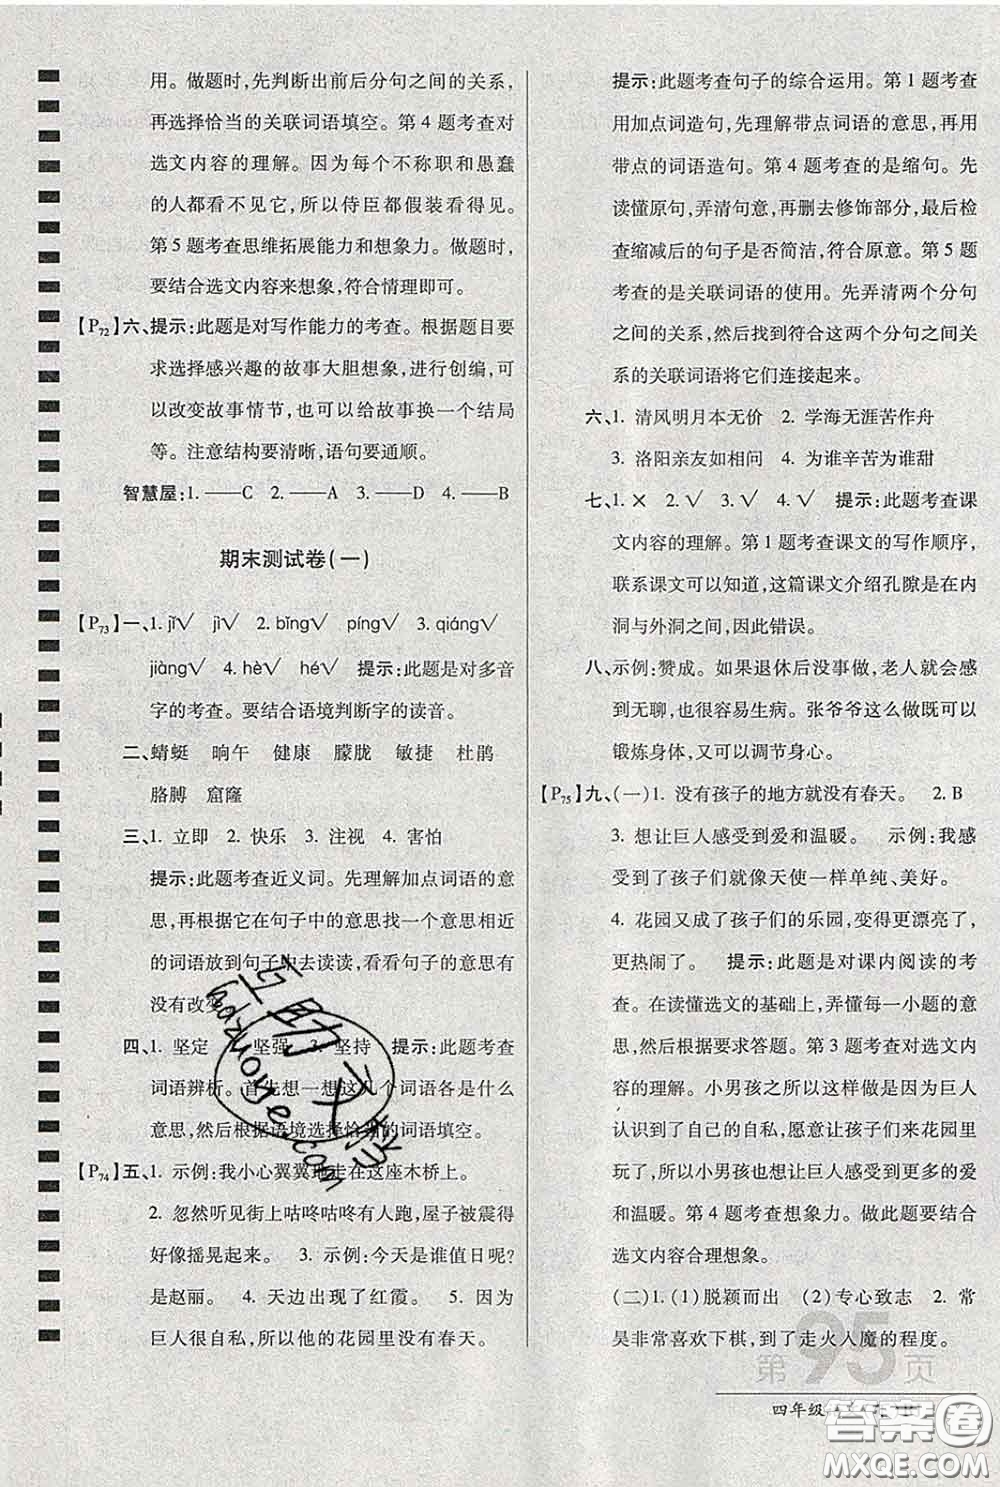 用。做题时,先判断出前后分句之间的关系,
再选择恰当的关联词语填空。第4题考查对
选文内容的理解。因为每个不称职和愚蠢
的人都看不见它,所以侍臣都假装看得见。
第5题考查思维拓展能力和想象力。做题时,
要结合选文内容来想象,符合情理即可。
【P72】六、提示:此题是对写作能力的考查。根据题目要
求选择感兴趣的故事大胆想象,进行创编,可
以改变故事情节,也可以给故事换一个结局
等。注意结构要清晰,语句要通顺。
智慧屋:1.——C 2.——A 3.——D 4.——B
期末测试卷(一)
【P73】一、1. jǐ√ jì√ 2. bǐng√ píng√ 3. qiáng√
jiàng√ 4. hè√ hé√ 提示:此题是对多音
字的考查。要结合语境判断字的读音。
二、蜻蜓 晌午 健康 朦胧 敏捷 杜鹃
胳膊 窟窿
三、1. 立即 2. 快乐 3. 注视 4. 害怕
提示:此题考查近义词。先理解加点词语的意
思,再根据它在句子中的意思找一个意思相近
的词语放到句子中去读读,看看句子的意思有
没有改变。
四、1. 坚定 坚强 3. 坚持 提示:此题考查
词语辨析。首先想一想这几个词语各是什么
意思,然后根据语境选择恰当的词语填空。
【P74】五、1. 示例:我小心翼翼地走在这座木桥上。
2. 忽然听见街上咕咚咕咚有人跑,屋子被震得
好像摇晃起来。 3. 示例:今天是谁值日呢?
是赵丽。 4. 天边出现了红霞。 5. 因为
巨人很自私,所以他的花园里没有春天。
提示:此题考查句子的综合运用。第1题考查
用加点词造句,先理解带点词语的意思,再用
带点的词语造句。第4题考查的是缩句。先
读懂原句,弄清句意,再删去修饰部分,最后检
查缩减后的句子是否简洁,符合原意。第5题
考查的是关联词语的使用。先弄清两个分句
之间的关系,然后找到符合这两个分句之间关
系的关联词语将它们连接起来。
六、1. 清风明月本无价 2. 学海无涯苦作舟
3. 洛阳亲友如相问 4. 为谁辛苦为谁甜
七、1. × 2. √ 3. √ 4. √ 提示:此题考查课
文内容的理解。第1题考查课文的写作顺序,
联系课文可以知道,这篇课文介绍孔隙是在内
洞与外洞之间,因此错误。
八、示例:赞成。如果退休后没事做,老人就会感
到无聊,也很容易生病。张爷爷这么做既可以
锻炼身体,又可以调节身心。
【P75】九、(一)1. 没有孩子的地方就没有春天。 2. B
3. 想让巨人感受到爱和温暖。 示例:我感
受到了孩子们就像天使一样单纯、美好。
4. 花园又成了孩子们的乐园,变得更漂亮了,
更热闹了。 提示:此题是对课内阅读的考
查。在读懂选文的基础上,弄懂每一小题的意
思,然后根据要求答题。第3题考查对选文内
容的理解。小男孩之所以这样做是因为巨人
认识到了自己的自私,愿意让孩子们来花园里
玩了,所以小男孩也要让巨人感受到更多的爱
和温暖。第4题考查想象力。做此题要结合
选文内容合理想象。
(二)1. (1)脱颖而出 (2)专心致志 2. 常
昊非常喜欢下棋,到了走火入魔的程度。
第95页
四年级
答案卷
MXQE.COM
互助文学
hdzuoye.com